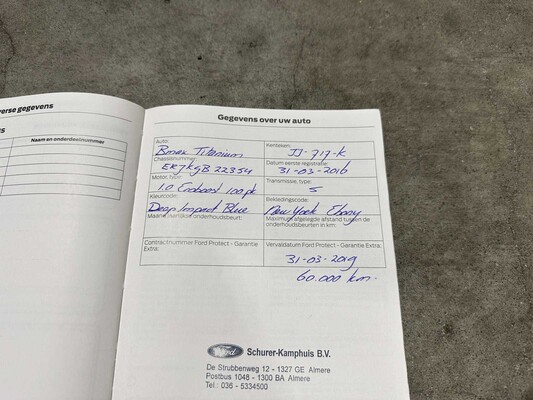 erse gegevens
Naam en onderdeelnummer
Gegevens over uw auto
Auto: Kenteken:
Bmax Titanium JJ-717-K
Chassisnummer: Datum eerste registratie:
ERJKGB22354 31-03-2016
Motor, type: Transmissie, type:
1.0 Ecoboost 100pk 5
Kleurcode: Bekledingscode:
Deep Impact Blue New York Ebony
Maximum afgelegde afstand tussen de
onderhoudsbeurten in km:
Contractnummer Ford Protect - Garantie Extra: Vervaldatum Ford Protect - Garantie Extra:
31-03-2019
60.000 km.
Ford Schurer-Kamphuis B.V.
De Strubbenweg 12 - 1327 GE Almere
Postbus 1048 - 1300 BA Almere
Tel.: 036 - 5334500